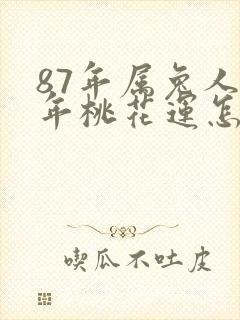 87年属兔人
年桃花运怎
喫瓜不吐皮